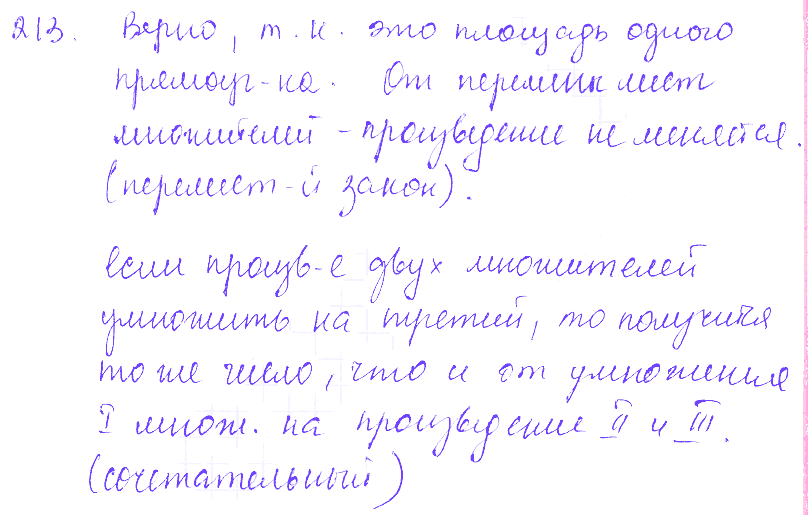 213. Верно, т.к. это площадь одного
прямоуг-ка. От перемены мест
множителей - произведение не меняется.
(перемест-й закон).
Если произв-е двух множителей
умножить на третий, то получится
то же число, что и от умножения
I множ. на произведение II и III.
(сочетательный)